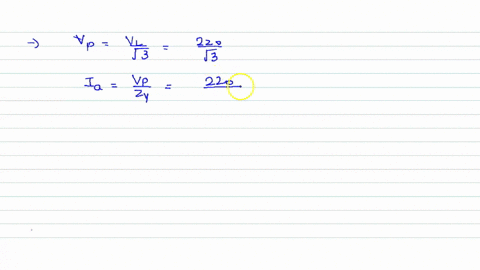 → Vp = VL/√3 = 220/√3
Ia = Vp/Zy = 220